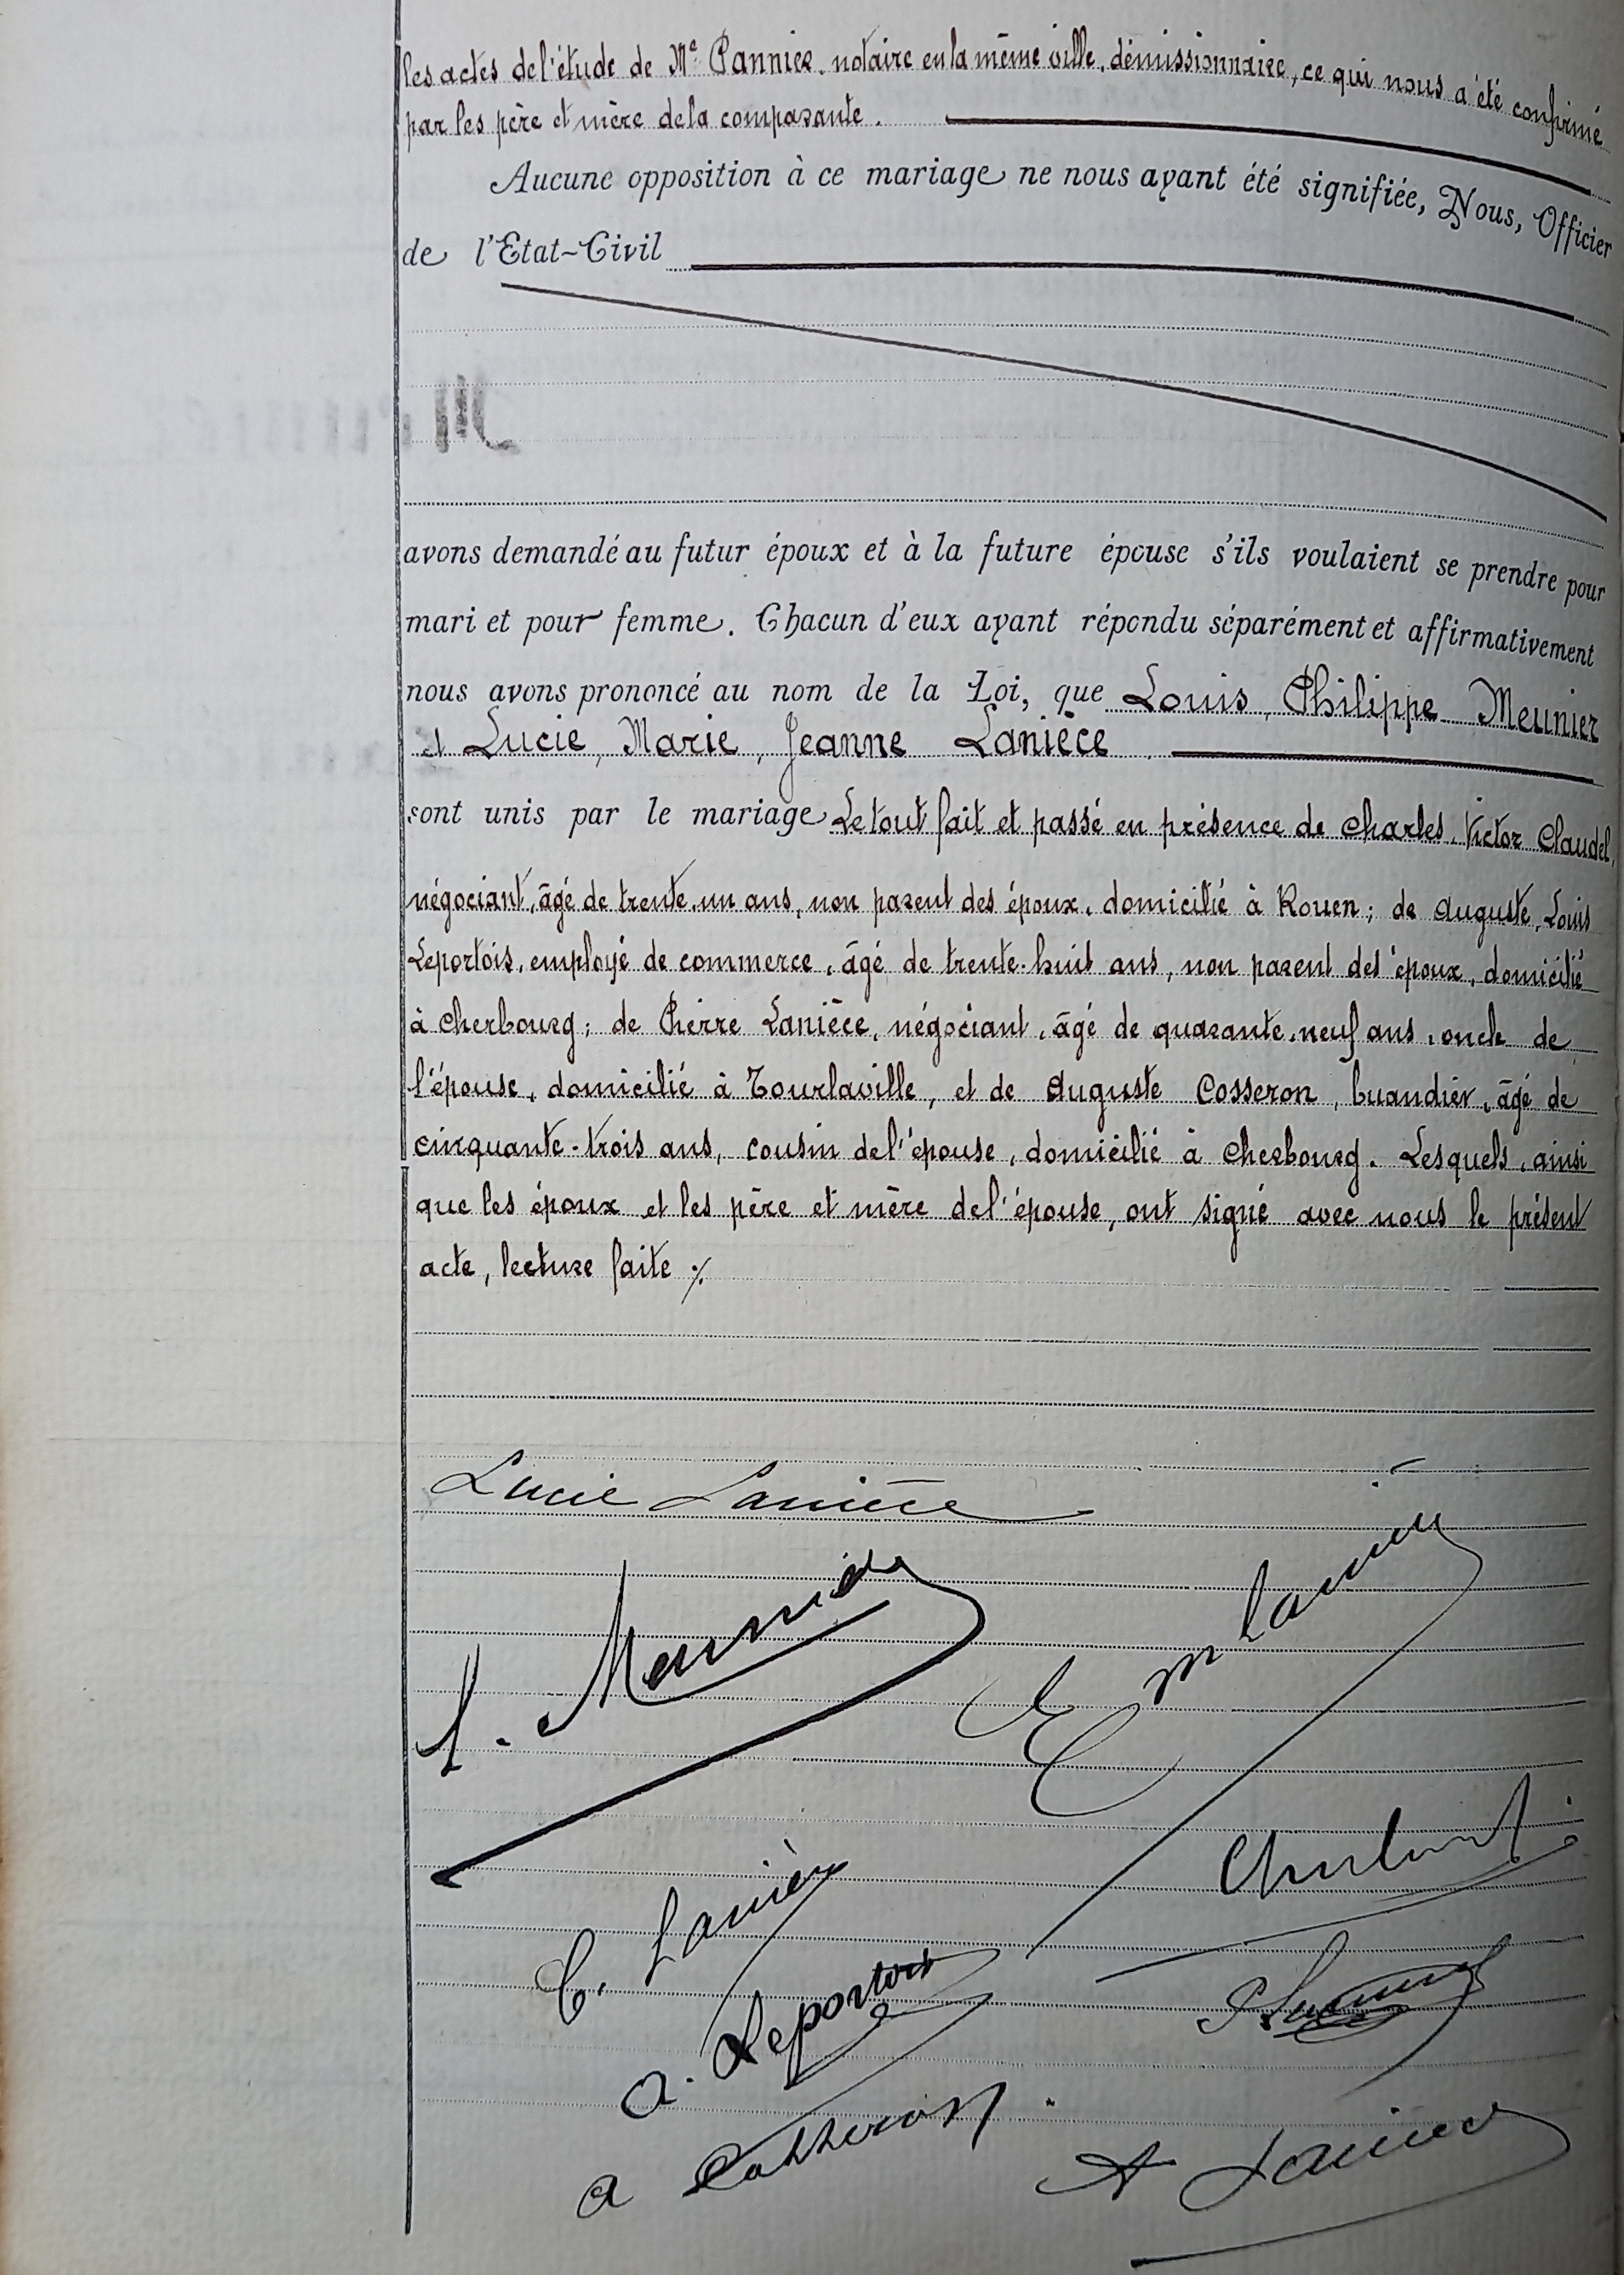 les actes de l'étude de Me Pannier, notaire en la même ville, démissionnaire, ce qui nous a été confirmé
par les père et mère de la comparante.
Aucune opposition à ce mariage ne nous ayant été signifiée, Nous, Officier
de l'Etat-Civil
avons demandé au futur époux et à la future épouse s'ils voulaient se prendre pour
mari et pour femme. Chacun d'eux ayant répondu séparément et affirmativement
nous avons prononcé au nom de la Loi, que Louis, Philippe Meunier
et Lucie, Marie, Jeanne Lanièce
sont unis par le mariage Le tout fait et passé en présence de Charles, Victor Claudel,
négociant, âgé de trente-un ans, non parent des époux, domicilié à Rouen; de Auguste, Louis
Leportois, employé de commerce, âgé de trente-huit ans, non parent des époux, domicilié
à Cherbourg; de Pierre Lanièce, négociant, âgé de quarante-neuf ans, oncle de
l'épouse, domicilié à Tourlaville, et de Auguste Cosseron, buandier, âgé de
cinquante-trois ans, cousin de l'épouse, domicilié à Cherbourg. Lesquels, ainsi
que les époux et les père et mère de l'épouse, ont signé avec nous le présent
acte, lecture faite ./.
Lucie Lanièce
L. Meunier
Em Lanièce
C. Lanièce
A. Leportois
A Cosseron
A Lanièce